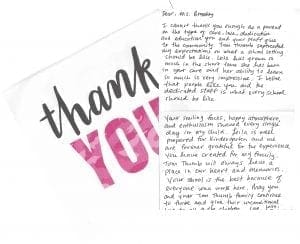 thank
YOU
Dear, Ms. Brandy
I cannot thank you enough as a parent
on the type of care, love, dedication
and education you and your staff give
to the community. Tom Thumb surpassed
my expectations on what a school setting
should be like. Leila has grown so
much in the short time she has been
in your care and her ability to learn
so much is very impressive. I believe
that people like you and the
dedicated staff is what every school
should be like.
Your smiling faces, happy atmosphere,
and enthusiasm showed every single
day in my child. Leila is well
prepared for kindergarten and we
are forever grateful for the experience
you have created for my family.
Tom Thumb will always have a
place in our heart and memories.
Your school is the best because of
everyone who work here. May you
and your Tom Thumb family continue
to thrive and give their